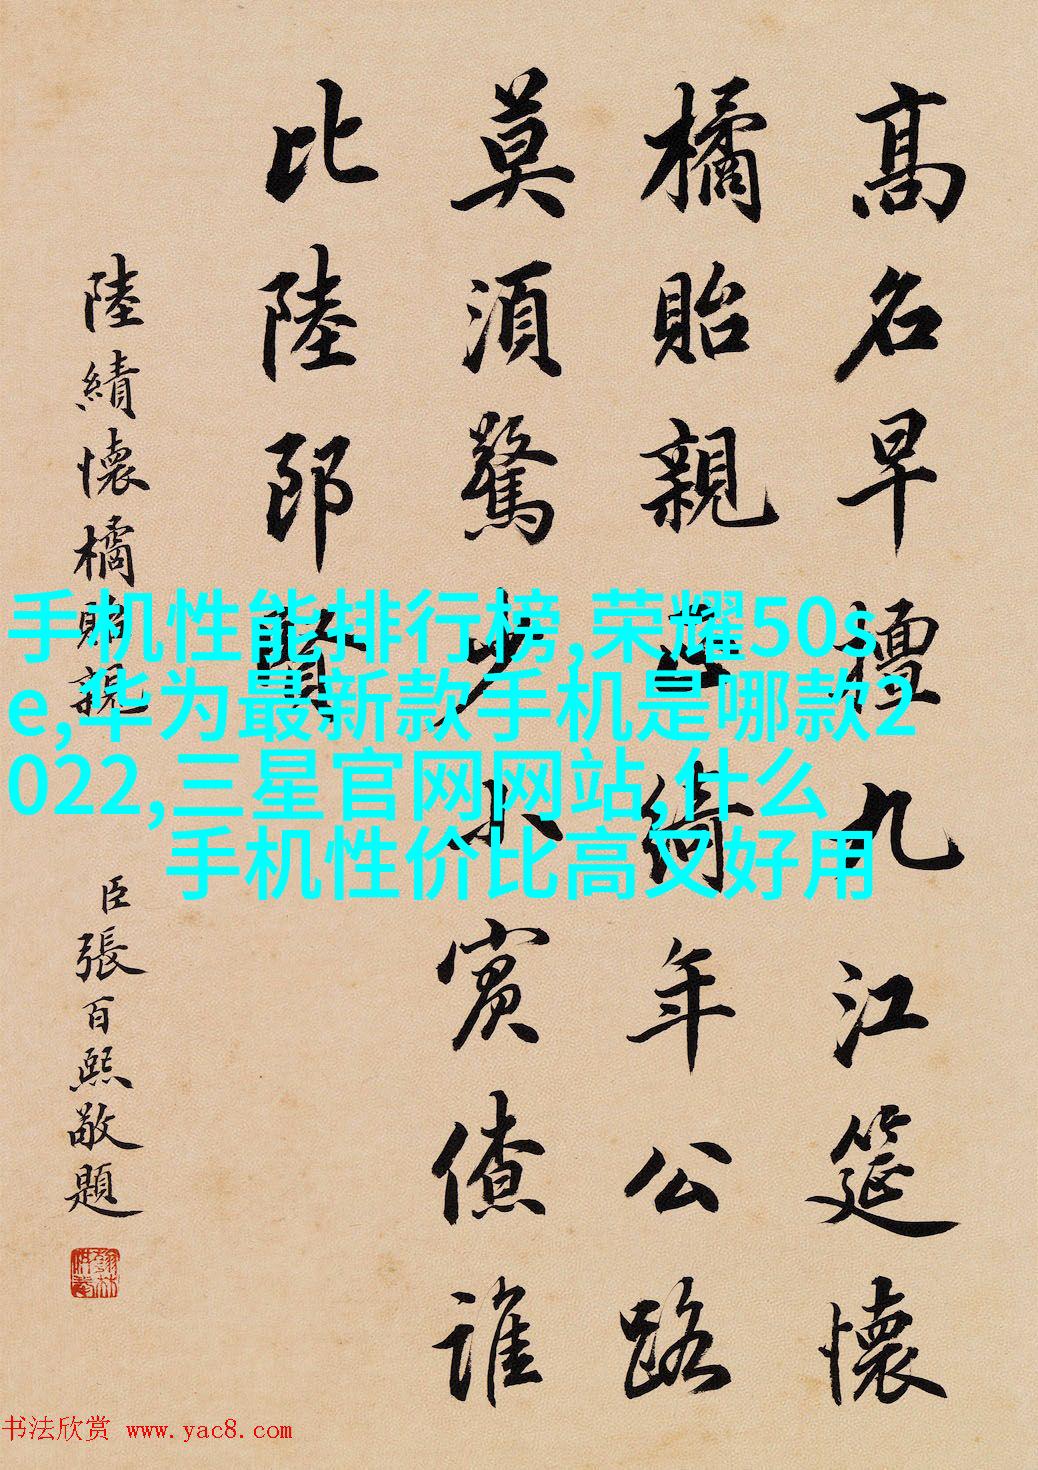 高名早檀九江筵懷
橘貽親正綺年公路
莫須驚少小賓僚誰
比陸郎賢
陸績懷橘貽親
臣張百熙敬題
手机性能排行榜,荣耀50s
e,华为最新款手机是哪款2
022,三星官网网站,什么
手机性价比高又好用
书法欣赏 www.yac8.com